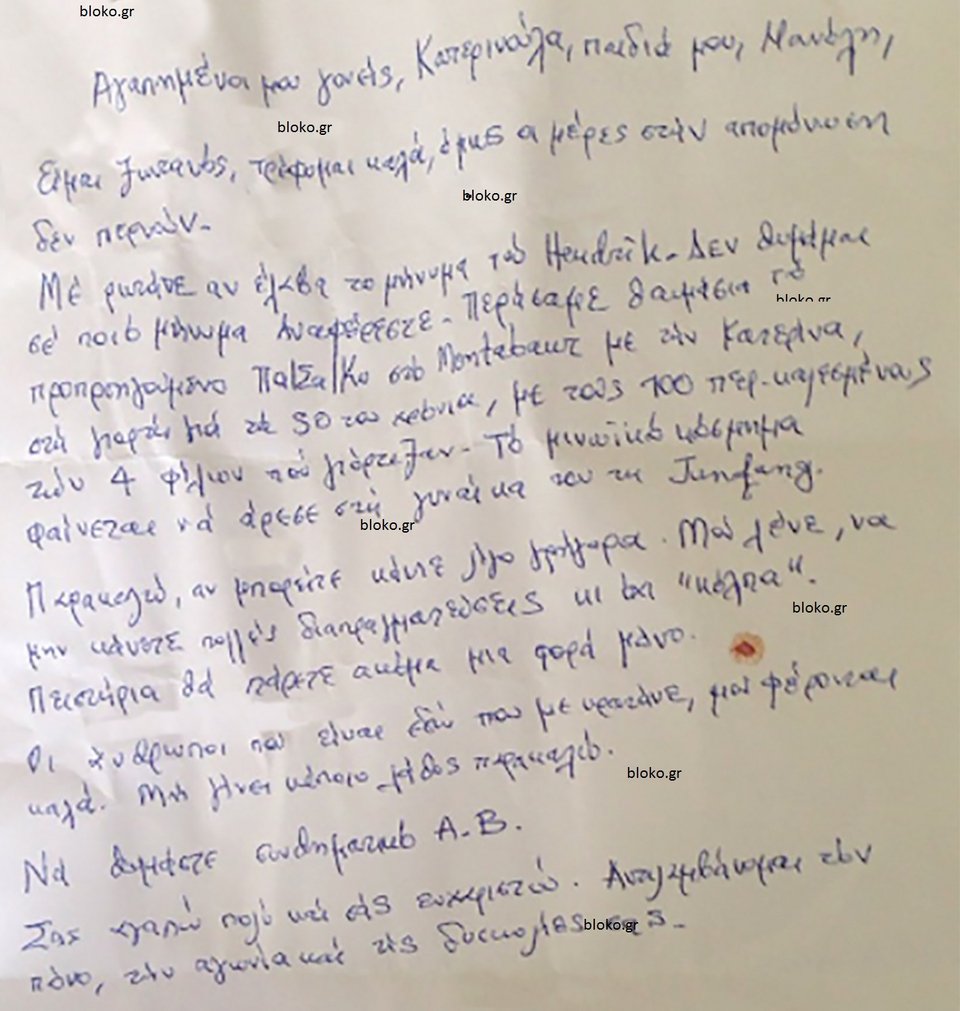 bloko.gr
Αγαπημένοι μου γονείς, Κατερινούλα, παιδιά μου, Μανόλη,
bloko.gr
Είμαι ζωντανός, τρέφομαι καλά, όμως οι μέρες στήν απομόνωση
bloko.gr
δέν περνούν.
Μέ ρωτάνε αν έλαβα το μήνυμα τού Hendrik. Δεν θυμάμαι
σέ ποιό μήνυμα αναφέρεστε. Περάσαμε θαυμάσια τό
bloko.gr
προπροηγούμενο Πα/Σα/Κυ στό Montabaur με τήν Κατερίνα,
στή γιορτή γιά τά 50 του χρόνια, με τούς 100 περ. καλεσμένους
τών 4 φίλων πού γιόρταζαν. Τό μινωϊκό κόσμημα
φαίνεται νά άρεσε στή γυναίκα του τη Junfang.
bloko.gr
Παρακαλώ, αν μπορείτε κάντε λίγο γρήγορα. Μού λένε, να
μην κάνετε πολλές διαπραγματεύσεις κι όχι "κόλπα".
bloko.gr
Πειστήρια θά πάρετε ακόμα μια φορά μόνο.
Οι άνθρωποι πού είναι εδώ που με κρατάνε, μού φέρονται
καλά. Μή γίνει κάποιο λάθος παρακαλώ.
bloko.gr
Νά θυμάστε συνθηματικό Α.Β.
Σας αγαπώ πολύ καί σάς ευχαριστώ. Αντιλαμβάνομαι τόν
πόνο, τήν αγωνία καί τίς δυσκολίες σας.
bloko.gr